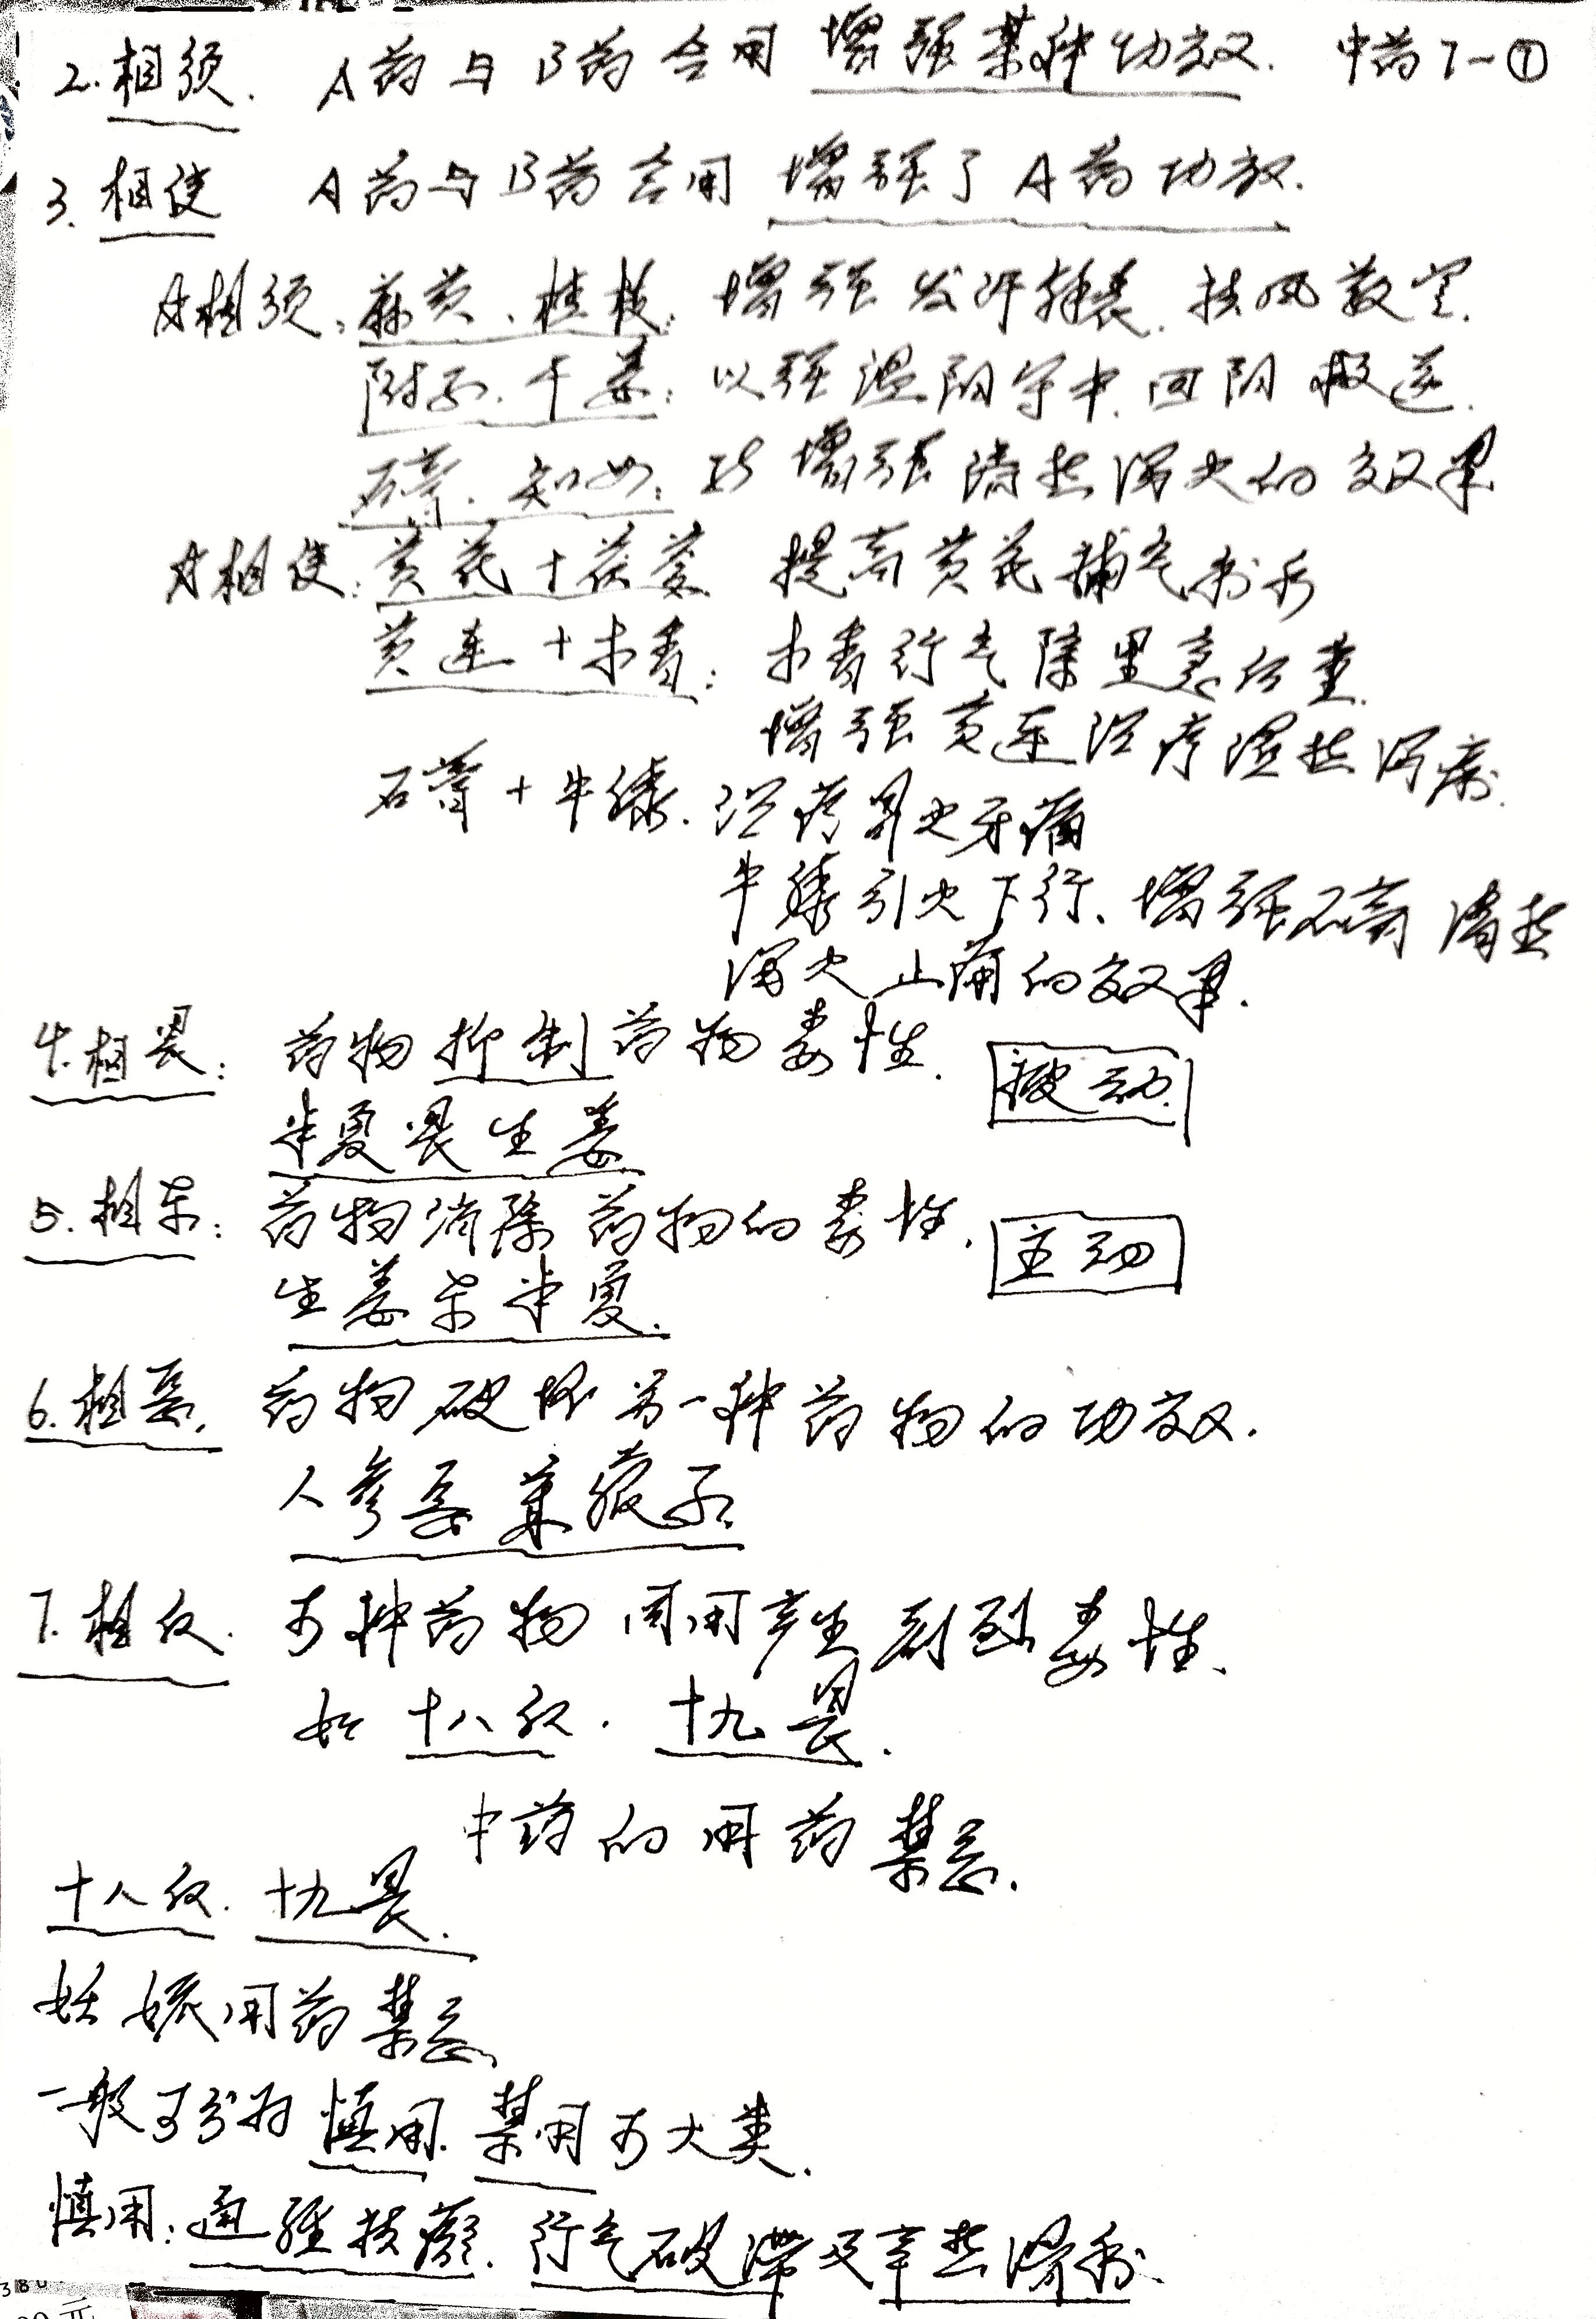 2.相须. A药与B药合用 增强某种功效. 中药7-①
3.相使 A药与B药合用 增强了A药功效.
相须:麻黄、桂枝:增强发汗解表.祛风散寒.
附子.干姜:以强温阳守中.回阳救逆.
石膏.知母:增强清热泻火的效果
相使:黄芪+茯苓 提高黄芪补气利水
黄连+木香:木香行气除里急后重.
增强黄连治疗湿热泻痢.
石膏+牛膝.治疗胃火牙痛
牛膝引火下行、增强石膏清热
泻火止痛的效果.
4.相畏:药物抑制药物毒性. 被动.
半夏畏生姜
5.相杀:药物消除药物的毒性. 主动
生姜杀半夏.
6.相恶.药物破坏另一种药物的功效.
人参恶莱菔子.
7.相反.两种药物同用产生剧烈毒性.
如十八反.十九畏.
中药的用药禁忌.
十八反.十九畏.
妊娠用药禁忌
一般可分为慎用.禁用两大类.
慎用:通经祛瘀.行气破滞及辛热滑利.
380